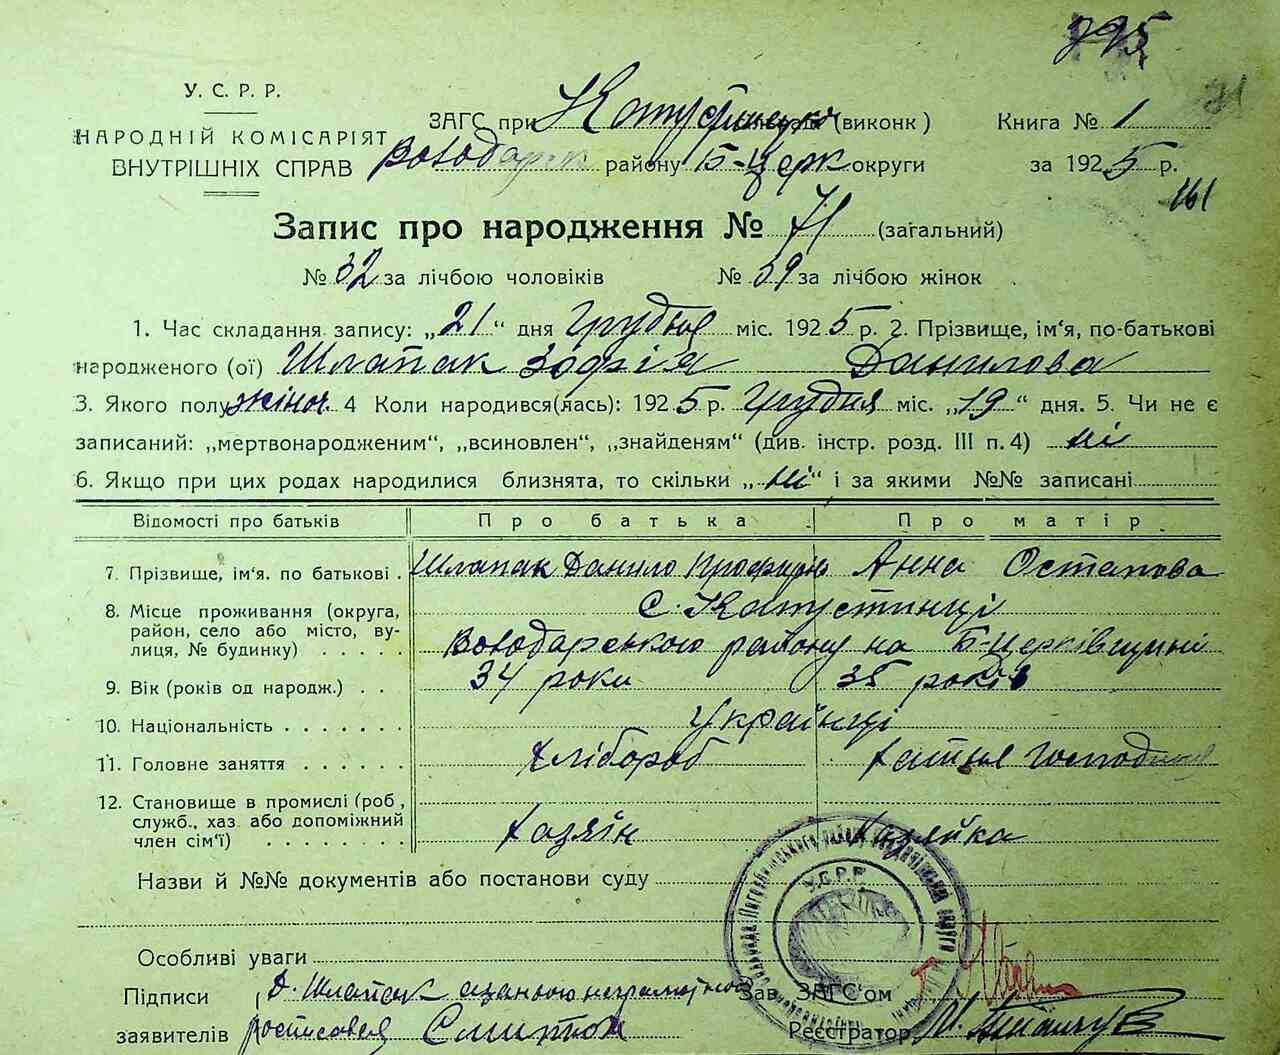 295
У. С. Р. Р.
НАРОДНІЙ КОМІСАРІЯТ
ВНУТРІШНІХ СПРАВ
ЗАГС при (виконк) Книга № 1
Володарск району Б-Церк округи за 1925 р.
161
Запис про народження № 71 (загальний)
№ 32 за лічбою чоловіків № 39 за лічбою жінок
1. Час складання запису: „21“ дня Грудня міс. 1925 р. 2. Прізвище, ім'я, по-батькові
народженого (ої) Шлапак Зофія Данилова
3. Якого полу жіноч. 4 Коли народився(лась): 1925 р. Грудня міс. „19“ дня. 5. Чи не є
записаний: „мертвонародженим“, „всиновлен“, „знайденям“ (див. інстр. розд. III п. 4) ні
6. Якщо при цих родах народилися близнята, то скільки „ні“ і за якими №№ записані
Відомості про батьків Про батька Про матір
7. Прізвище, ім'я. по батькові . Шлапак Данило Анна Остапова
8. Місце проживання (округа, район, село або місто, вулиця, № будинку) с. Капустинці
Володарського району на Б-Церківщині
9. Вік (років од народж.) 34 роки 35 років
10. Національність Українці
11. Головне заняття хлібороб хатня господиня
12. Становище в промислі (роб, служб., хаз або допоміжний член сім'ї) хазяїн хазяйка
Назви й №№ документів або постанови суду
У.С.Р.Р.
Особливі уваги
Підписи Д. Шлапак Зав ЗАГС'ом
заявителів Реєстратор